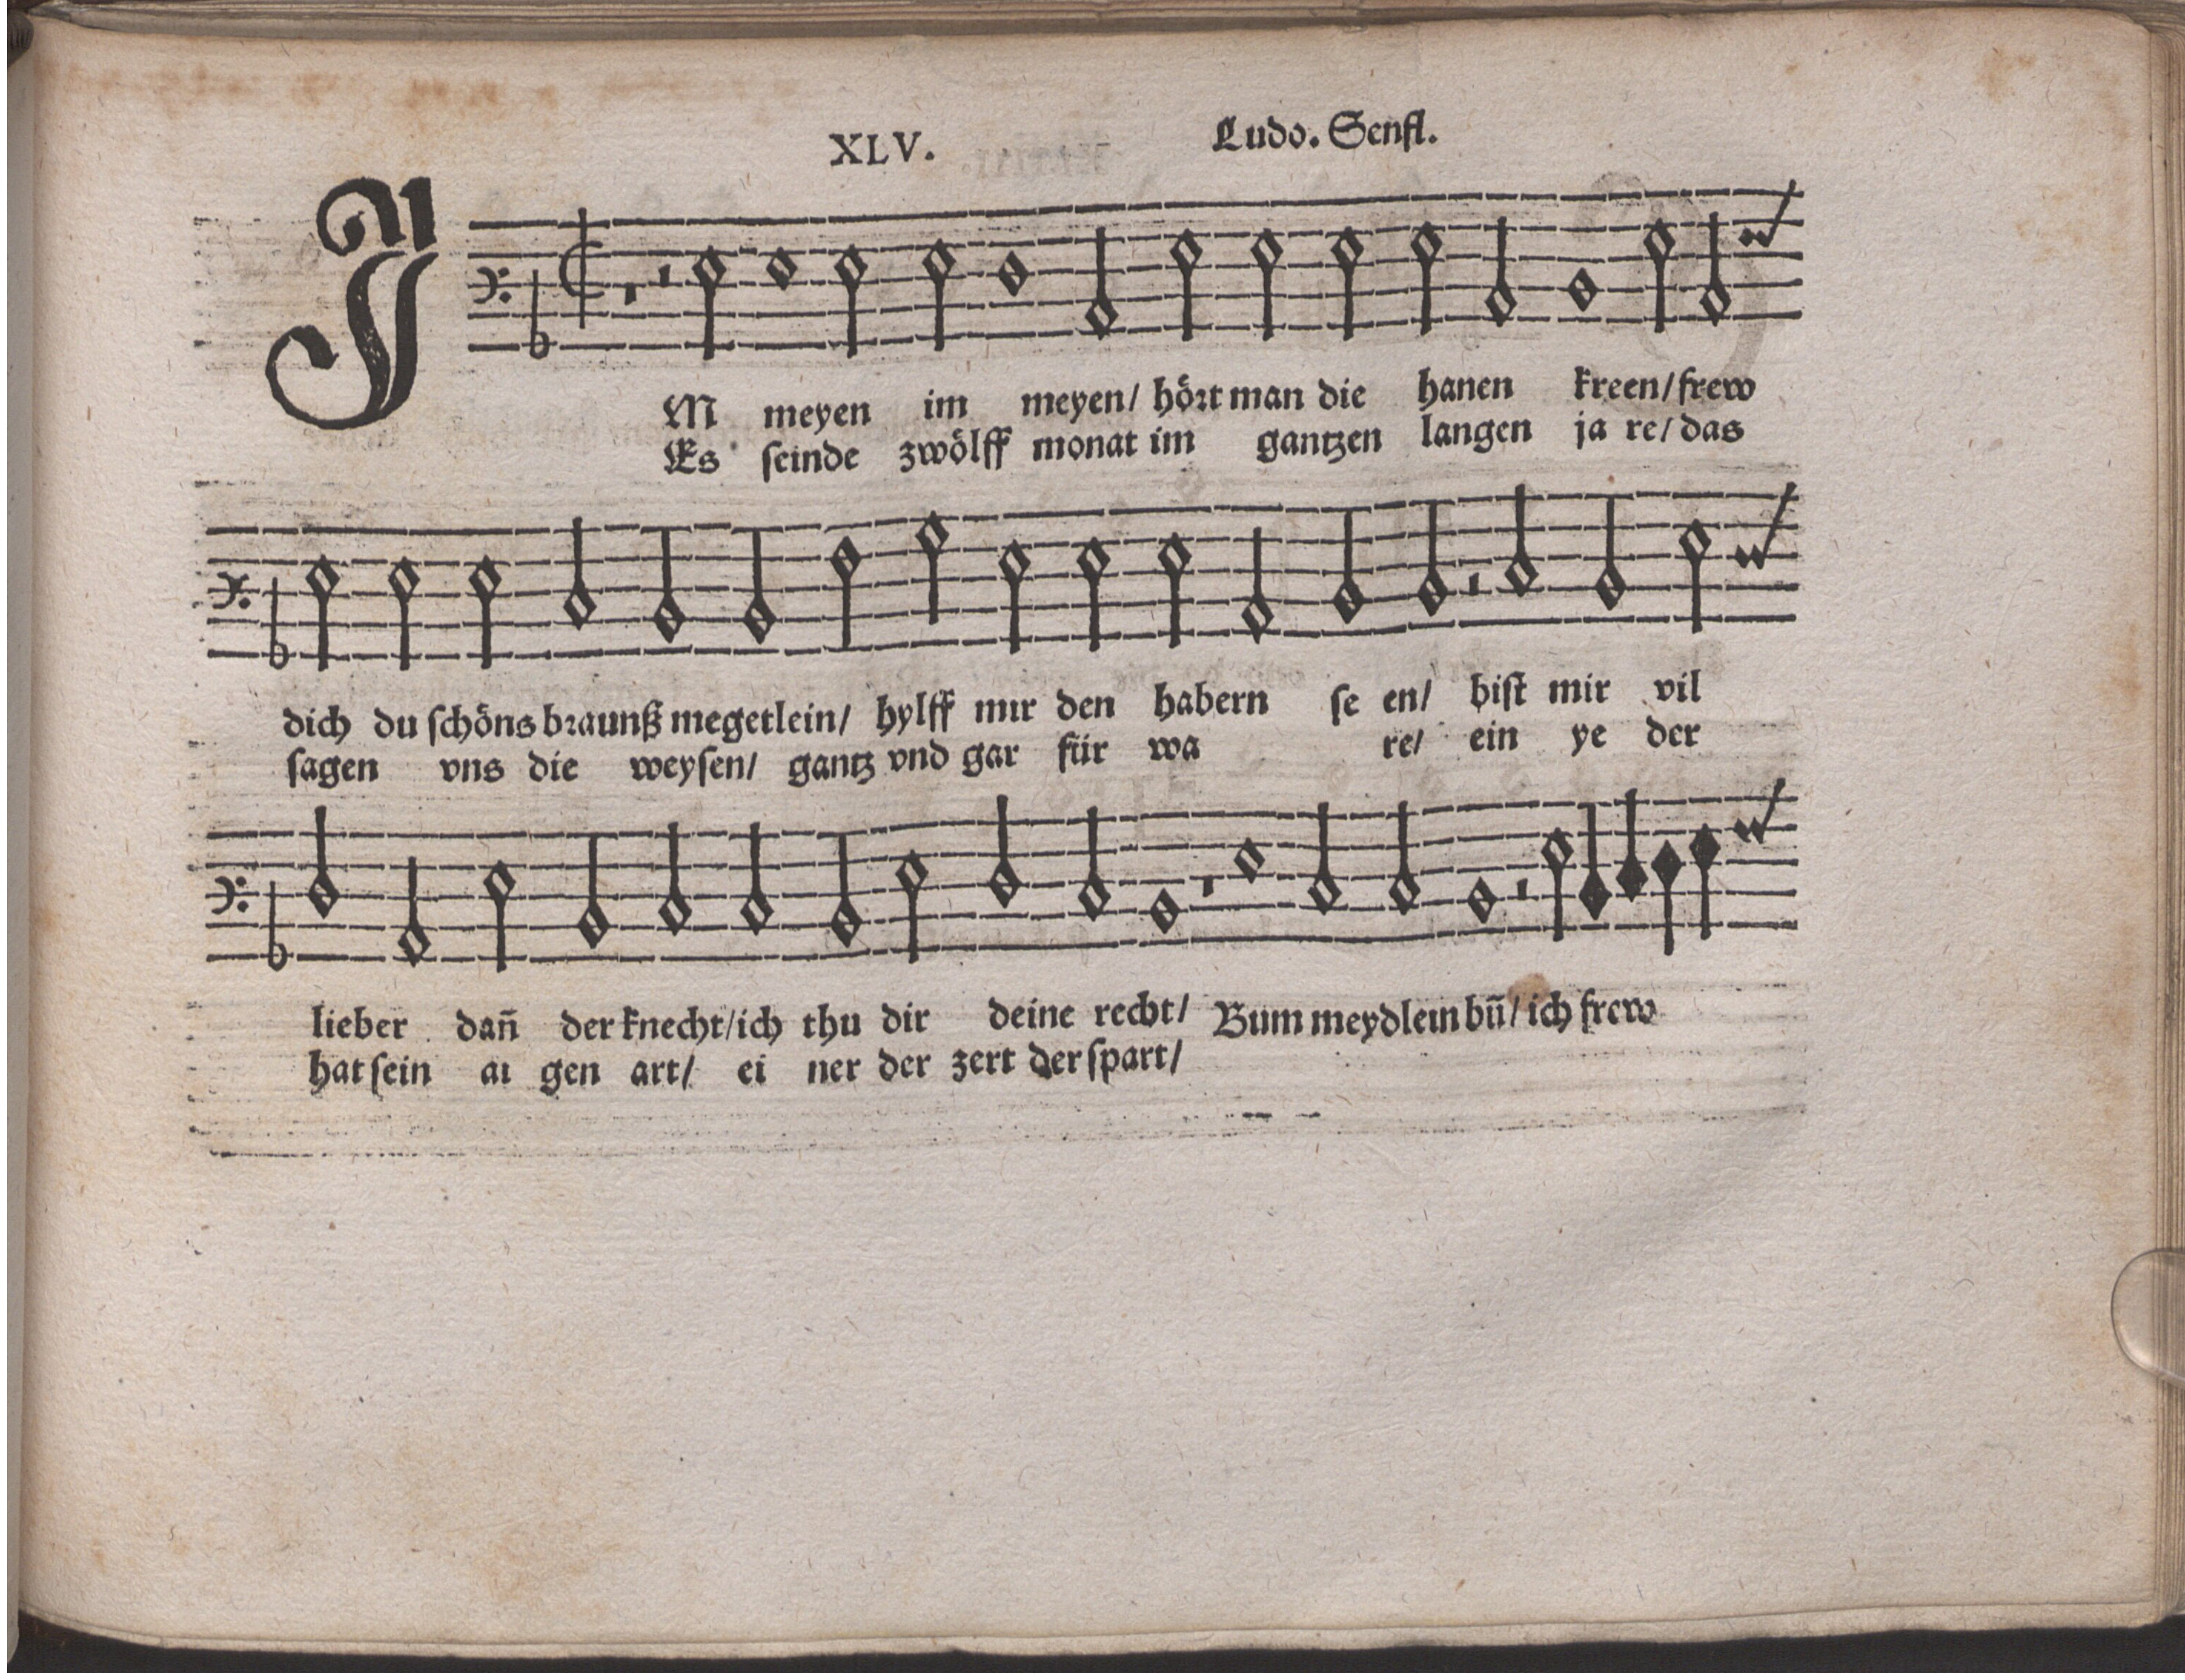 XLV. Ludo. Senfl.
JM meyen im meyen/ hört man die hanen kreen/ frew
Es seinde zwölff monat im gantzen langen ja re/ das
dich du schöns braunß megetlein/ hylff mir den habern se en/ bist mir vil
sagen vns die weysen/ gantz vnd gar für wa re/ ein ye der
lieber dañ der knecht/ ich thu dir deine recht/ Bum meydlein bũ/ ich frew
hat sein ai gen art/ ei ner der zert der spart/